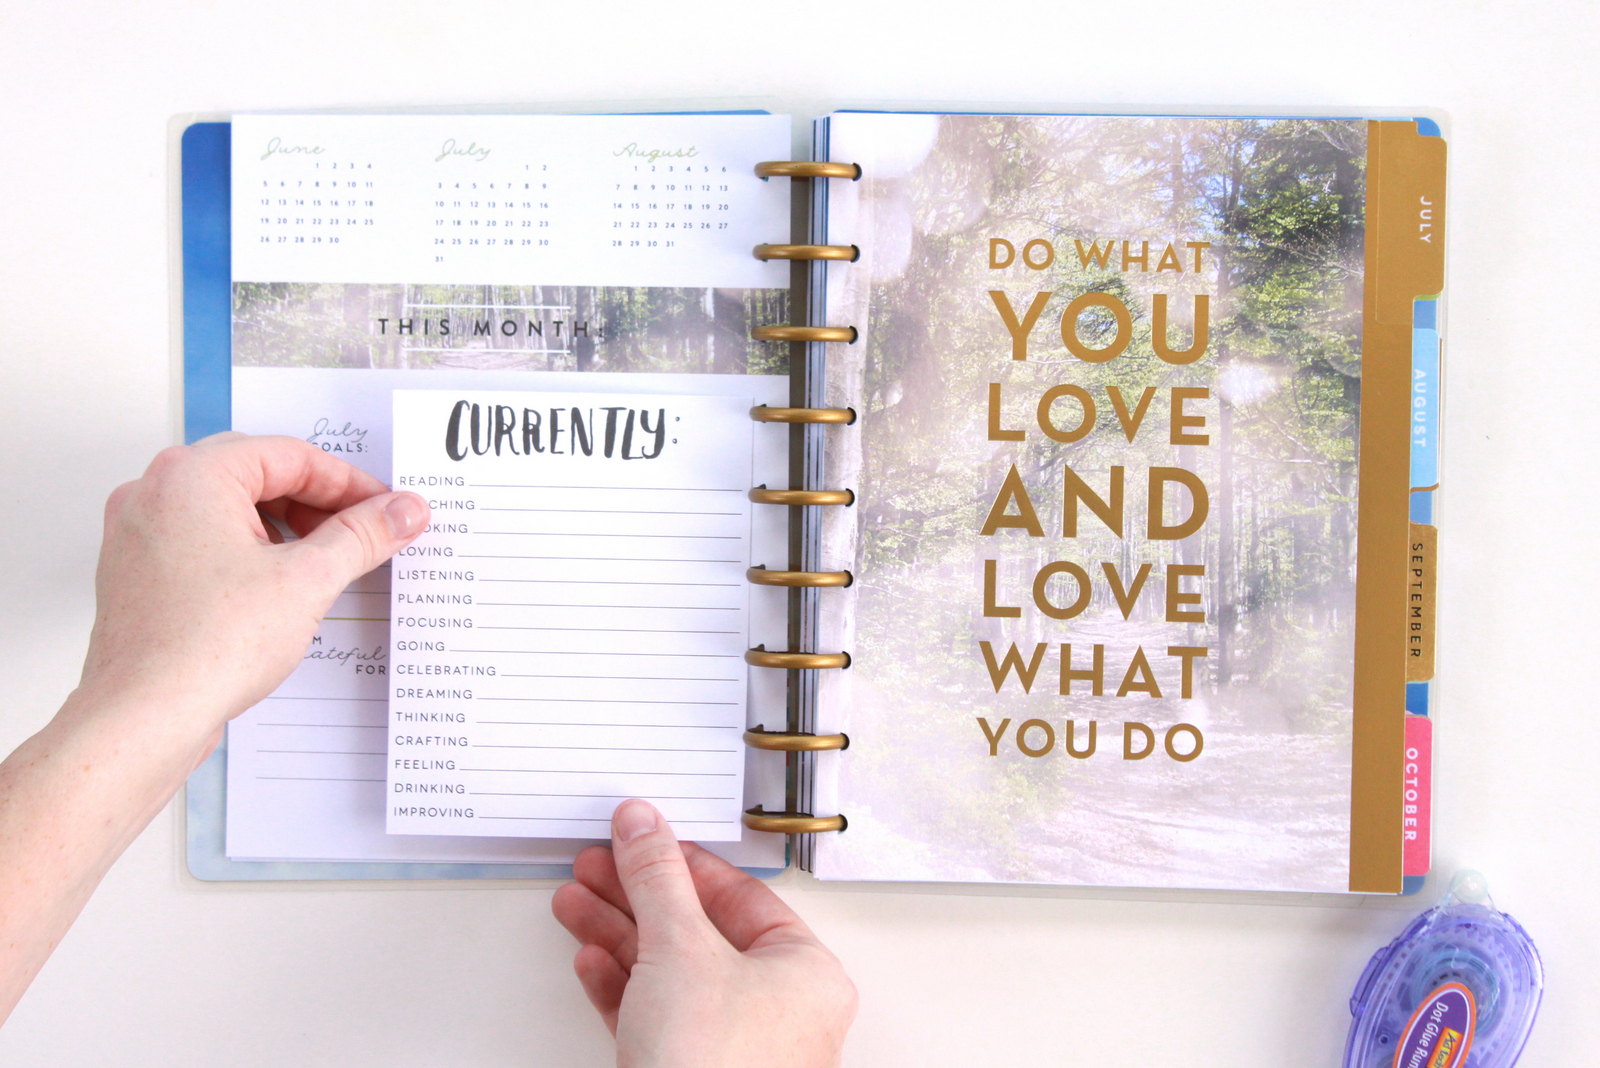 June
1 2 3 4
5 6 7 8 9 10 11
12 13 14 15 16 17 18
19 20 21 22 23 24 25
26 27 28 29 30
July
1 2
3 4 5 6 7 8 9
10 11 12 13 14 15 16
17 18 19 20 21 22 23
24 25 26 27 28 29 30
31
August
1 2 3 4 5 6
7 8 9 10 11 12 13
14 15 16 17 18 19 20
21 22 23 24 25 26 27
28 29 30 31
THIS MONTH:
July
GOALS:
M
ateful
FOR
CURRENTLY:
READING
CHING
OKING
LOVING
LISTENING
PLANNING
FOCUSING
GOING
CELEBRATING
DREAMING
THINKING
CRAFTING
FEELING
DRINKING
IMPROVING
DO WHAT
YOU
LOVE
AND
LOVE
WHAT
YOU DO
JULY
AUGUST
SEPTEMBER
OCTOBER
Dot Glue Run